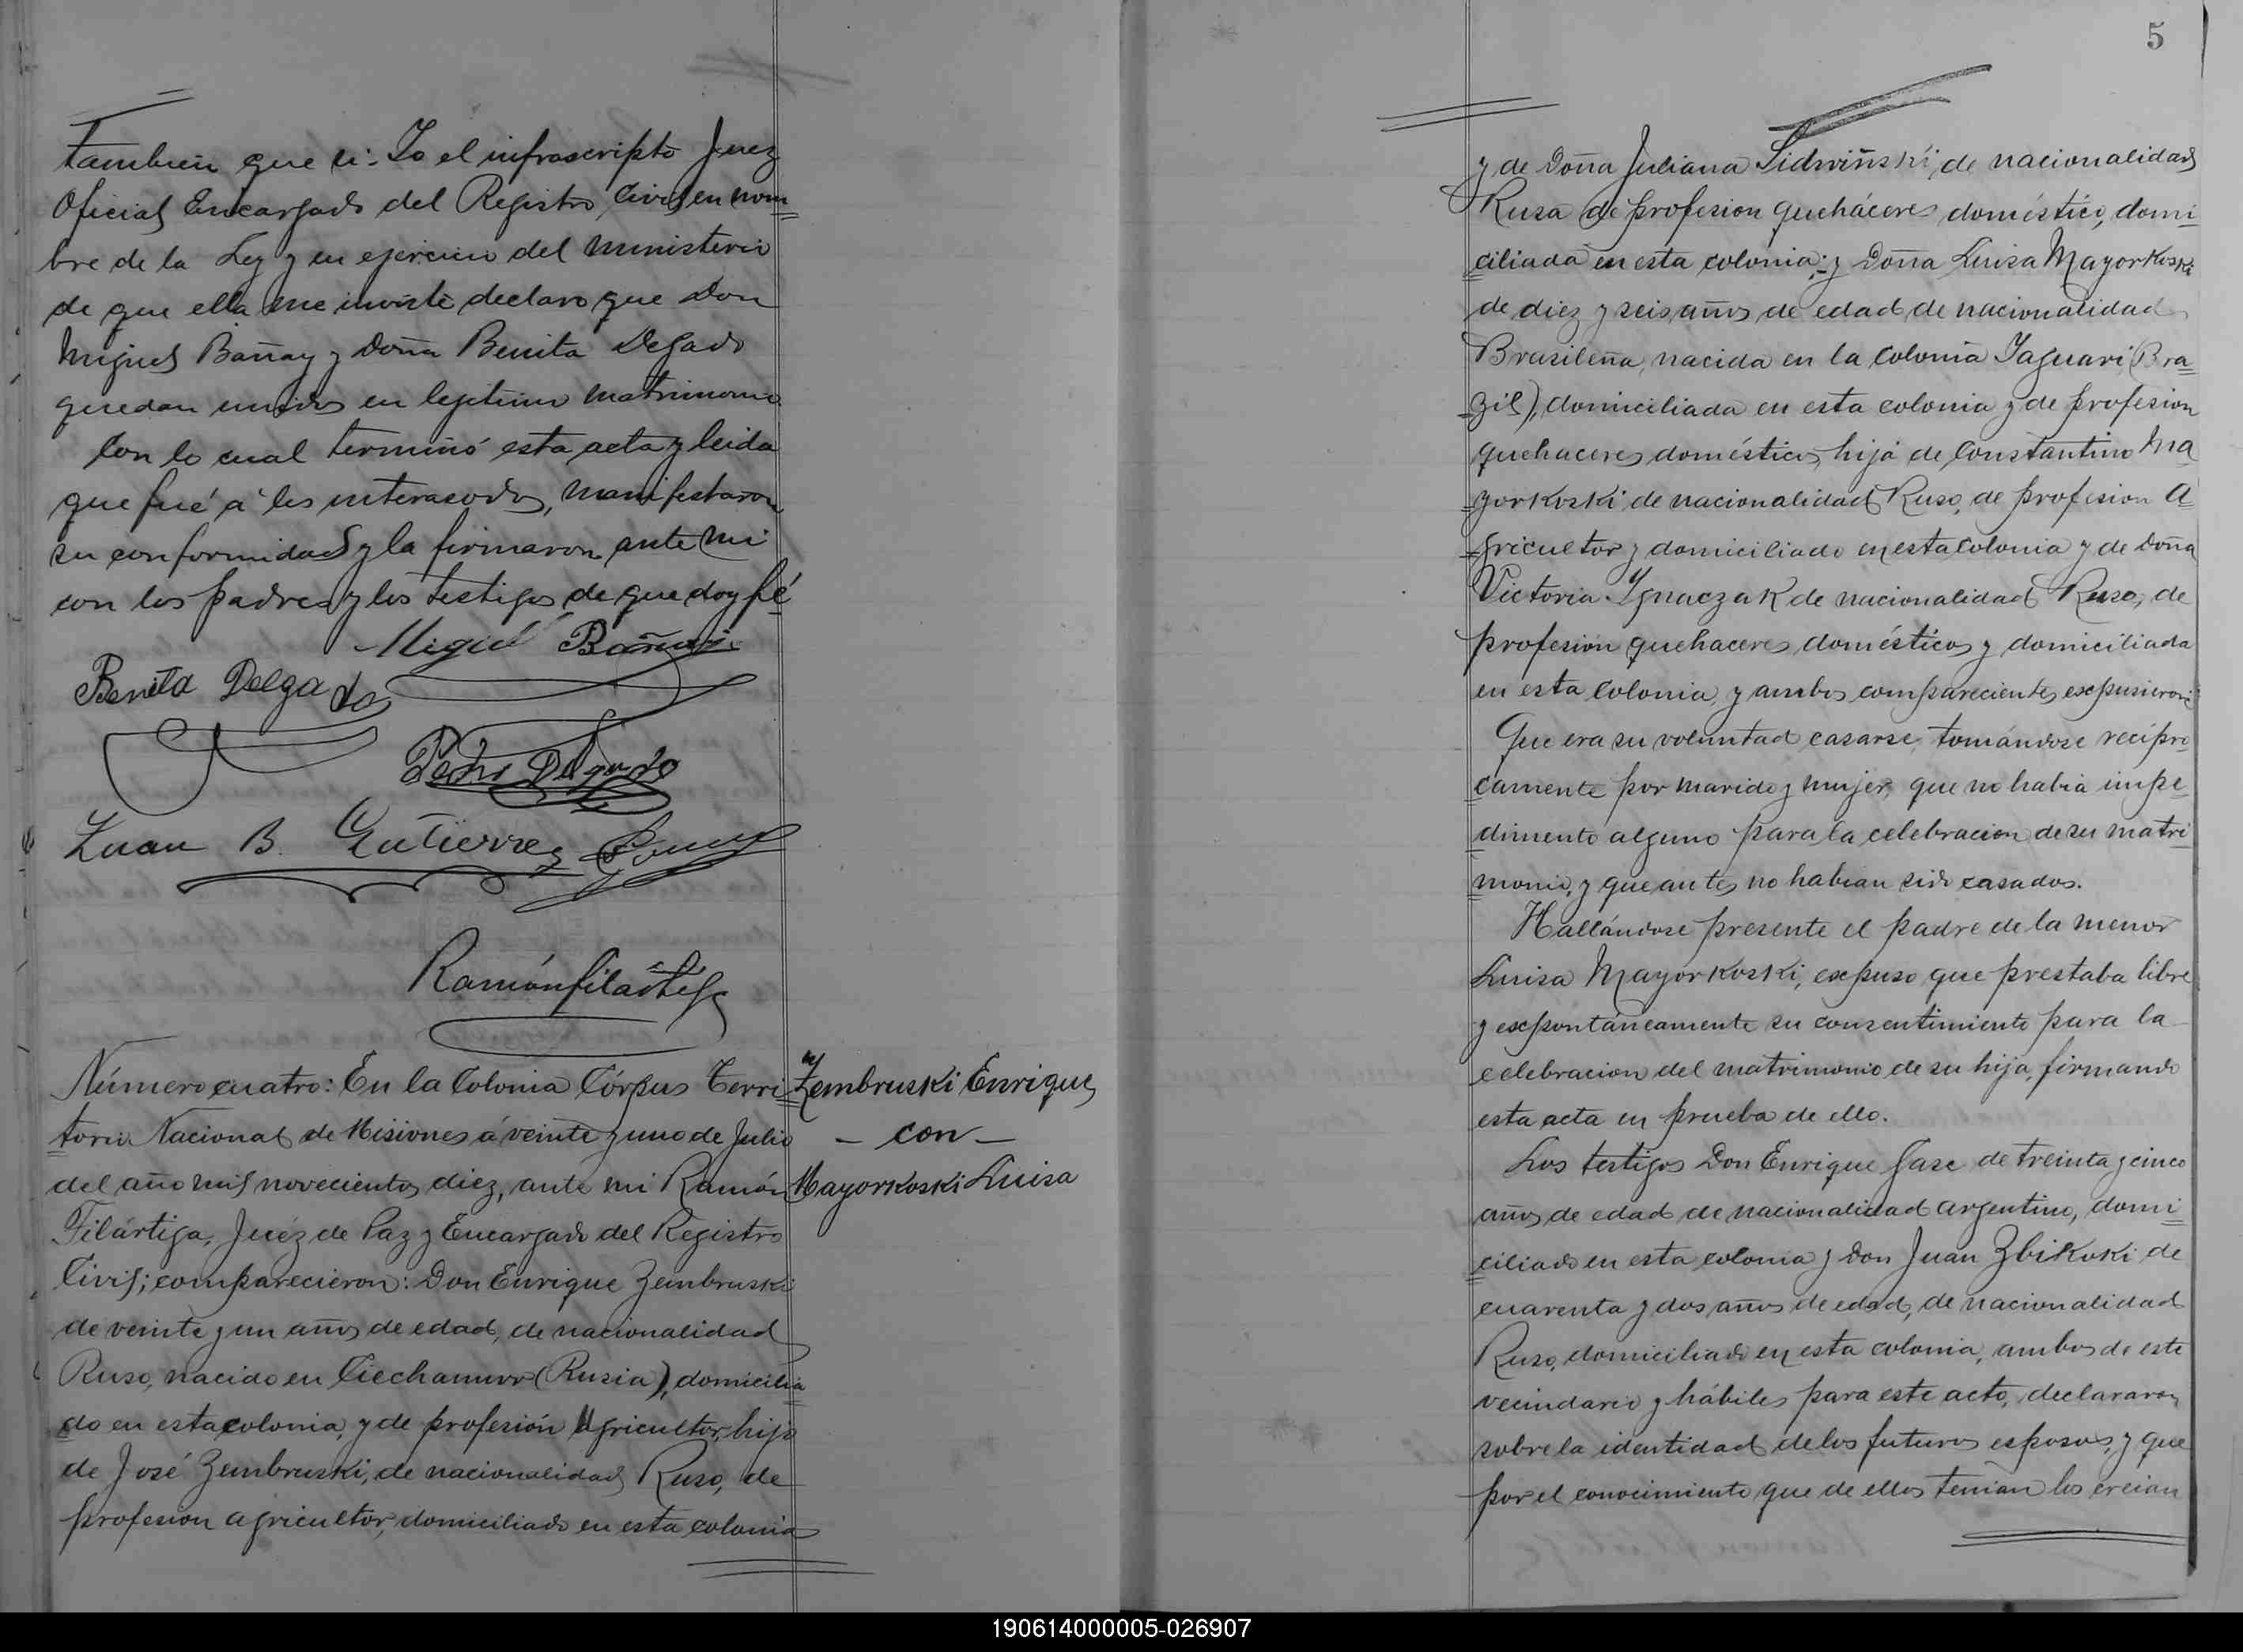 tambien que si: Yo el infrascripto Juez
Oficial Encargado del Registro Civil en nom=
bre de la Ley y en ejercicio del ministerio
de que ella me inviste declaro que Don
Miguel Bañay y Doña Benita Delgado
quedan unidos en legitimo matrimonio.
Con lo cual terminó esta acta y leida
que fué á los interasados, manifestaron
su conformidad y la firmaron ante mi
con los padres y los testigos de que doy fé
Miguel Bañay
Benita Delgado
Pedro Delgado
Luan B. Gutierrez
Ramón Filártiga
Número cuatro: En la Colonia Córpus Terri=
torio Nacional de Misiones á veinte y uno de Julio
del año mil novecientos diez, ante mi Ramón
Filártiga, Juez de Paz y Encargado del Registro
Civil; comparecieron: Don Enrique Zembruski
de veinte y un años de edad, de nacionalidad
Ruso, nacido en Ciechanuw (Rusia), domicilia=
do en esta colonia, y de profesión Agricultor, hijo
de José Zembruski, de nacionalidad Ruso, de
profesion agricultor, domiciliado en esta colonia
Zembruski Enrique
- con -
Mayorkoski Luisa
5
y de Doña Juliana Sidwiñski, de nacionalidad
Rusa de profesion quehaceres doméstico, domi=
ciliada en esta colonia; y Doña Luisa Mayorkoski
de diez y seis años de edad de nacionalidad
Brasileña, nacida en la colonia Jaguari (Bra=
zil), domiciliada en esta colonia y de profesion
quehaceres domésticos, hija de Constantino Ma
yorkoski de nacionalidad Ruso, de profesion A=
gricultor y domiciliado en esta colonia y de Doña
Victoria Ygnaczak de nacionalidad Rusa, de
profesión quehaceres domésticos y domiciliada
en esta colonia, y ambos comparecientes expusieron:
Que era su voluntad casarse, tomándose recipro=
camente por marido y mujer, que no habia impe=
dimento alguno para la celebracion de su matri=
monio, y que antes no habian sido casados.
Hallándose presente el padre de la menor
Luisa Mayorkoski, expuso que prestaba libre
y expontáneamente su consentimiento para la
celebracion del matrimonio de su hija, firmando
esta acta en prueba de ello.
Los testigos Don Enrique Gase de treinta y cinco
años de edad de nacionalidad argentino, domi=
ciliado en esta colonia y Don Juan Zbikoki de
cuarenta y dos años de edad, de nacionalidad
Ruso, domiciliado en esta colonia, ambos de este
vecindario y hábiles para este acto, declararon
sobre la identidad de los futuros esposos, y que
por el conocimiento que de ellos tenian los creian
190614000005-026907